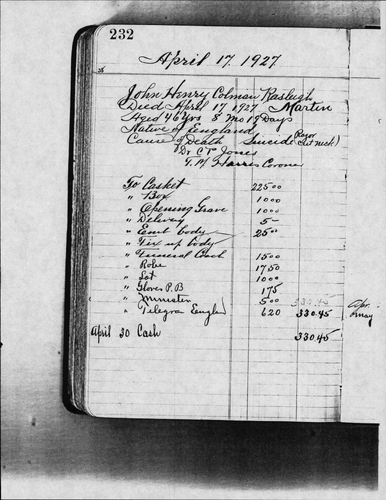 232
April 17, 1927
John Henry Colman Rasleigh
Died April 17 1927 Martin
Aged 46 Yrs 8 Mo 13 Days
Native of England
Cause of Death Suicide (Razor cut neck)
Dr C T Jones
T. M Harris Coroner
To Casket 225 00
" Box 10 00
" Opening Grave 10 00
" Delivery 5 -
" Emb body 25 00
" Fix up body
" Funeral Coach 15 00
" Robe 17 50
" Lot 10 00
" Gloves P. B 1 75
" Minister 5 00 330.45
" Telegram England 6 20 330.45
April 30 Cash 330.45
Apr.
May